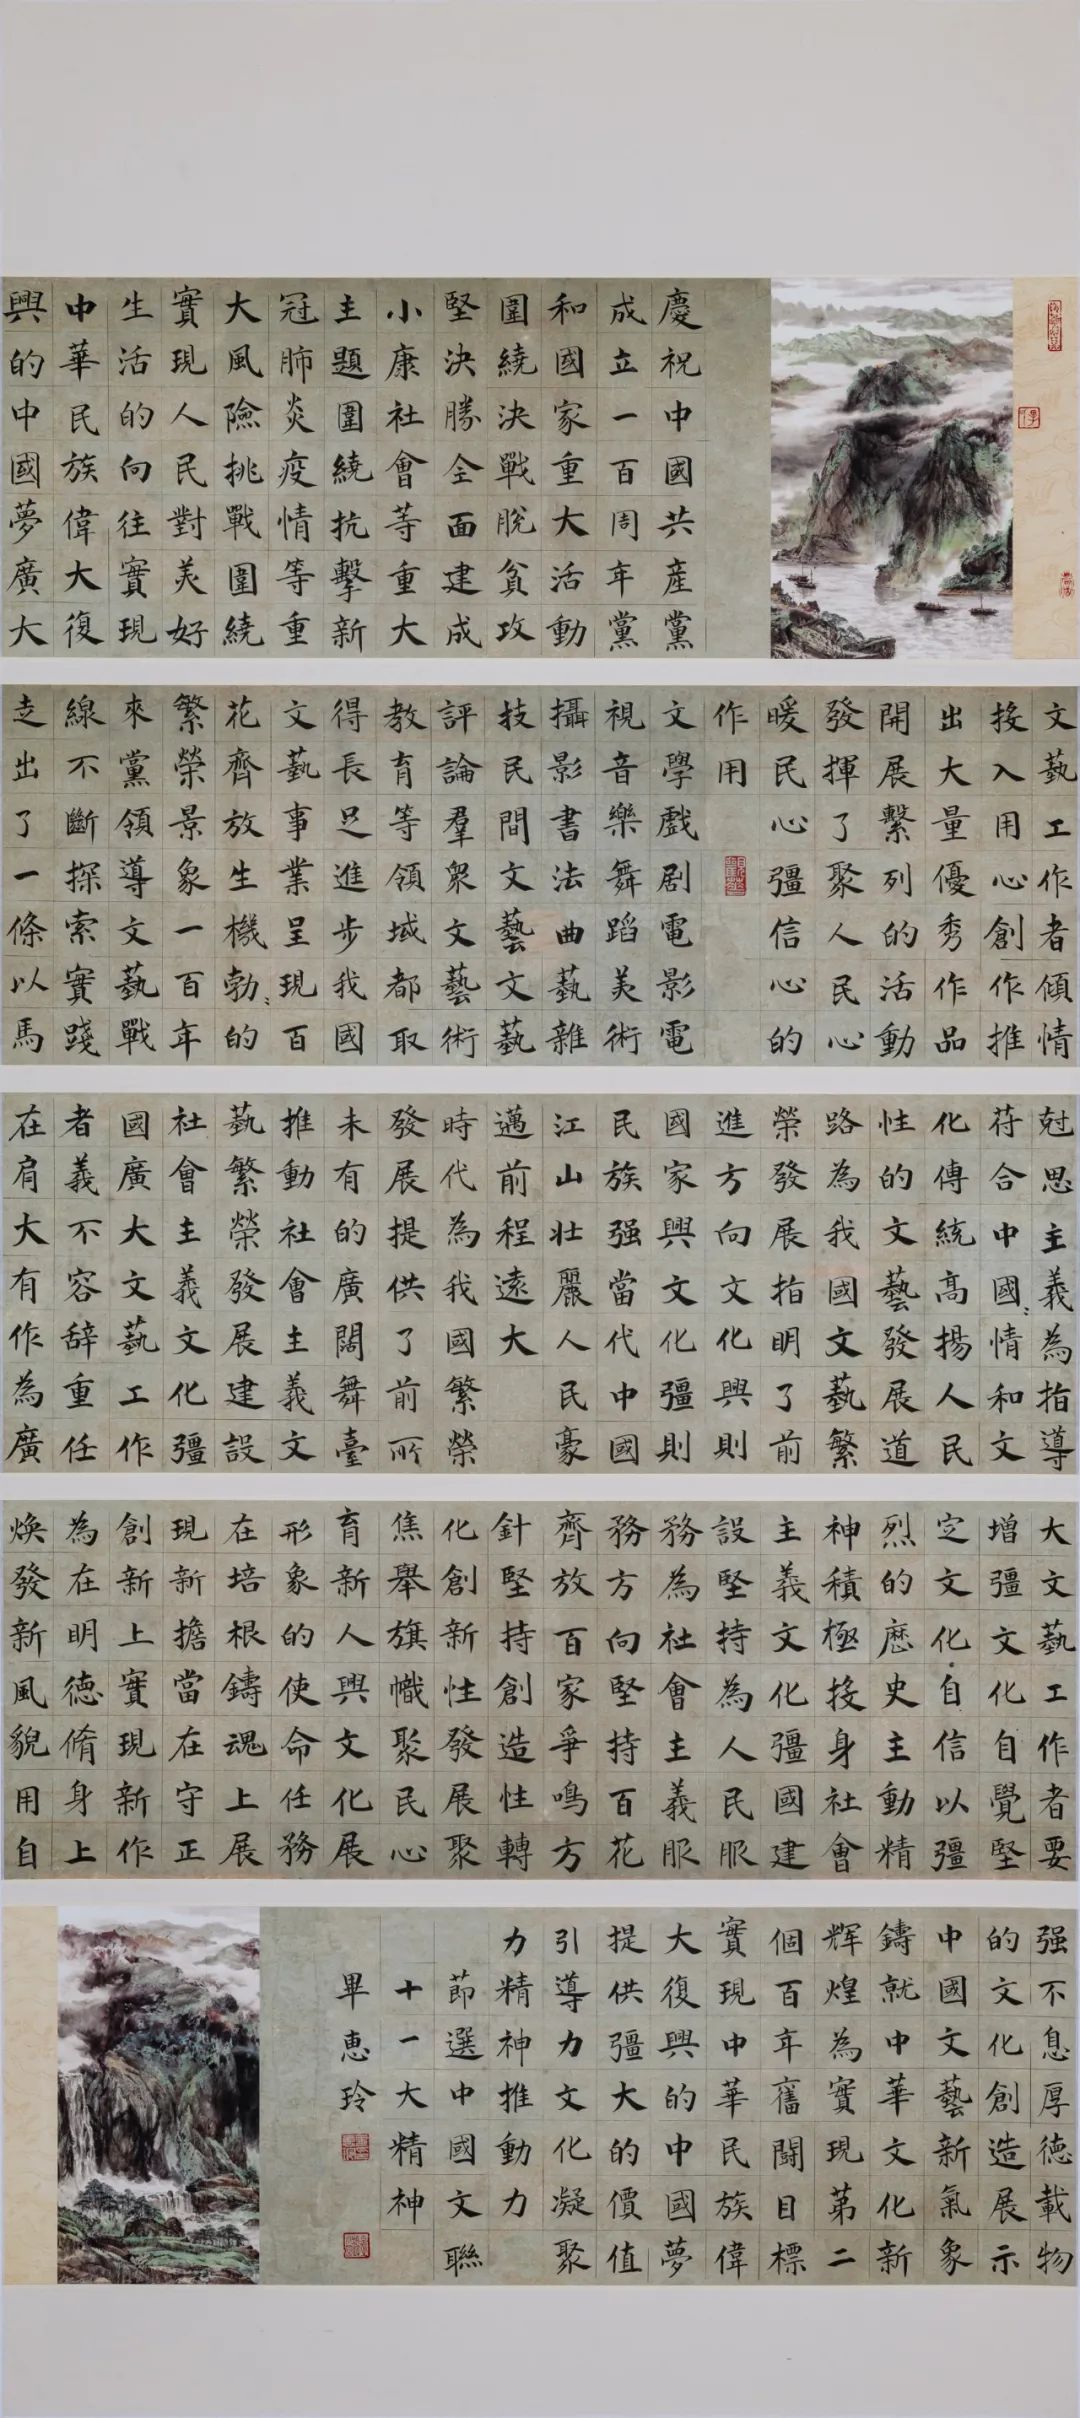 慶祝中國共產黨
成立一百周年黨
和國家重大活動
圍繞決戰脫貧攻
堅決勝全面建成
小康社會等重大
主題圍繞抗擊新
冠肺炎疫情等重
大風險挑戰圍繞
實現人民對美好
生活的向往實現
中華民族偉大復
興的中國夢廣大
文藝工作者傾情
投入用心創作推
出大量優秀作品
開展繫列的活動
發揮了聚人民心
暖民心彊信心的
作用
文學戲剧電影電
視音樂舞蹈美術
攝影書法曲藝雜
技民間文藝文藝
評論羣眾文藝術
教育等領域都取
得長足進步我國
文藝事業呈現百
花齊放生機勃〻的
繁榮景象一百年
來黨領導文藝戰
線不斷探索實踐
走出了一條以馬
尅思主義為指導
符合中國〻情和文
化傳統高揚人民
性的文藝發展道
路為我國文藝繁
榮發展指明了前
進方向文化興則
國家興文化彊則
民族强當代中國
江山壯麗人民豪
邁前程遠大
時代為我國繁榮
發展提供了前所
未有的廣闊舞臺
推動社會主義文
藝繁榮發展建設
社會主義文化彊
國廣大文藝工作
者義不容辞重任
在肩大有作為廣
大文藝工作者要
增彊文化自覺堅
定文化自信以彊
烈的歷史主動精
神積極投身社會
主義文化彊國建
設堅持為人民服
務為社會主義服
務方向堅持百花
齊放百家爭鳴方
針堅持創造性轉
化創新性發展聚
焦舉旗幟聚民心
育新人興文化展
形象的使命任務
在培根鑄魂上展
現新擔當在守正
創新上實現新作
為在明德脩身上
煥發新風貌用自
强不息厚德載物
的文化創造展示
中國文藝新氣象
鑄就中華文化新
輝煌為實現第二
個百年舊鬪目標
實現中華民族偉
大復興的中國夢
提供彊大的價值
引導力文化凝聚
力精神推動力
節選中國文聯
十一大精神
畢惠玲